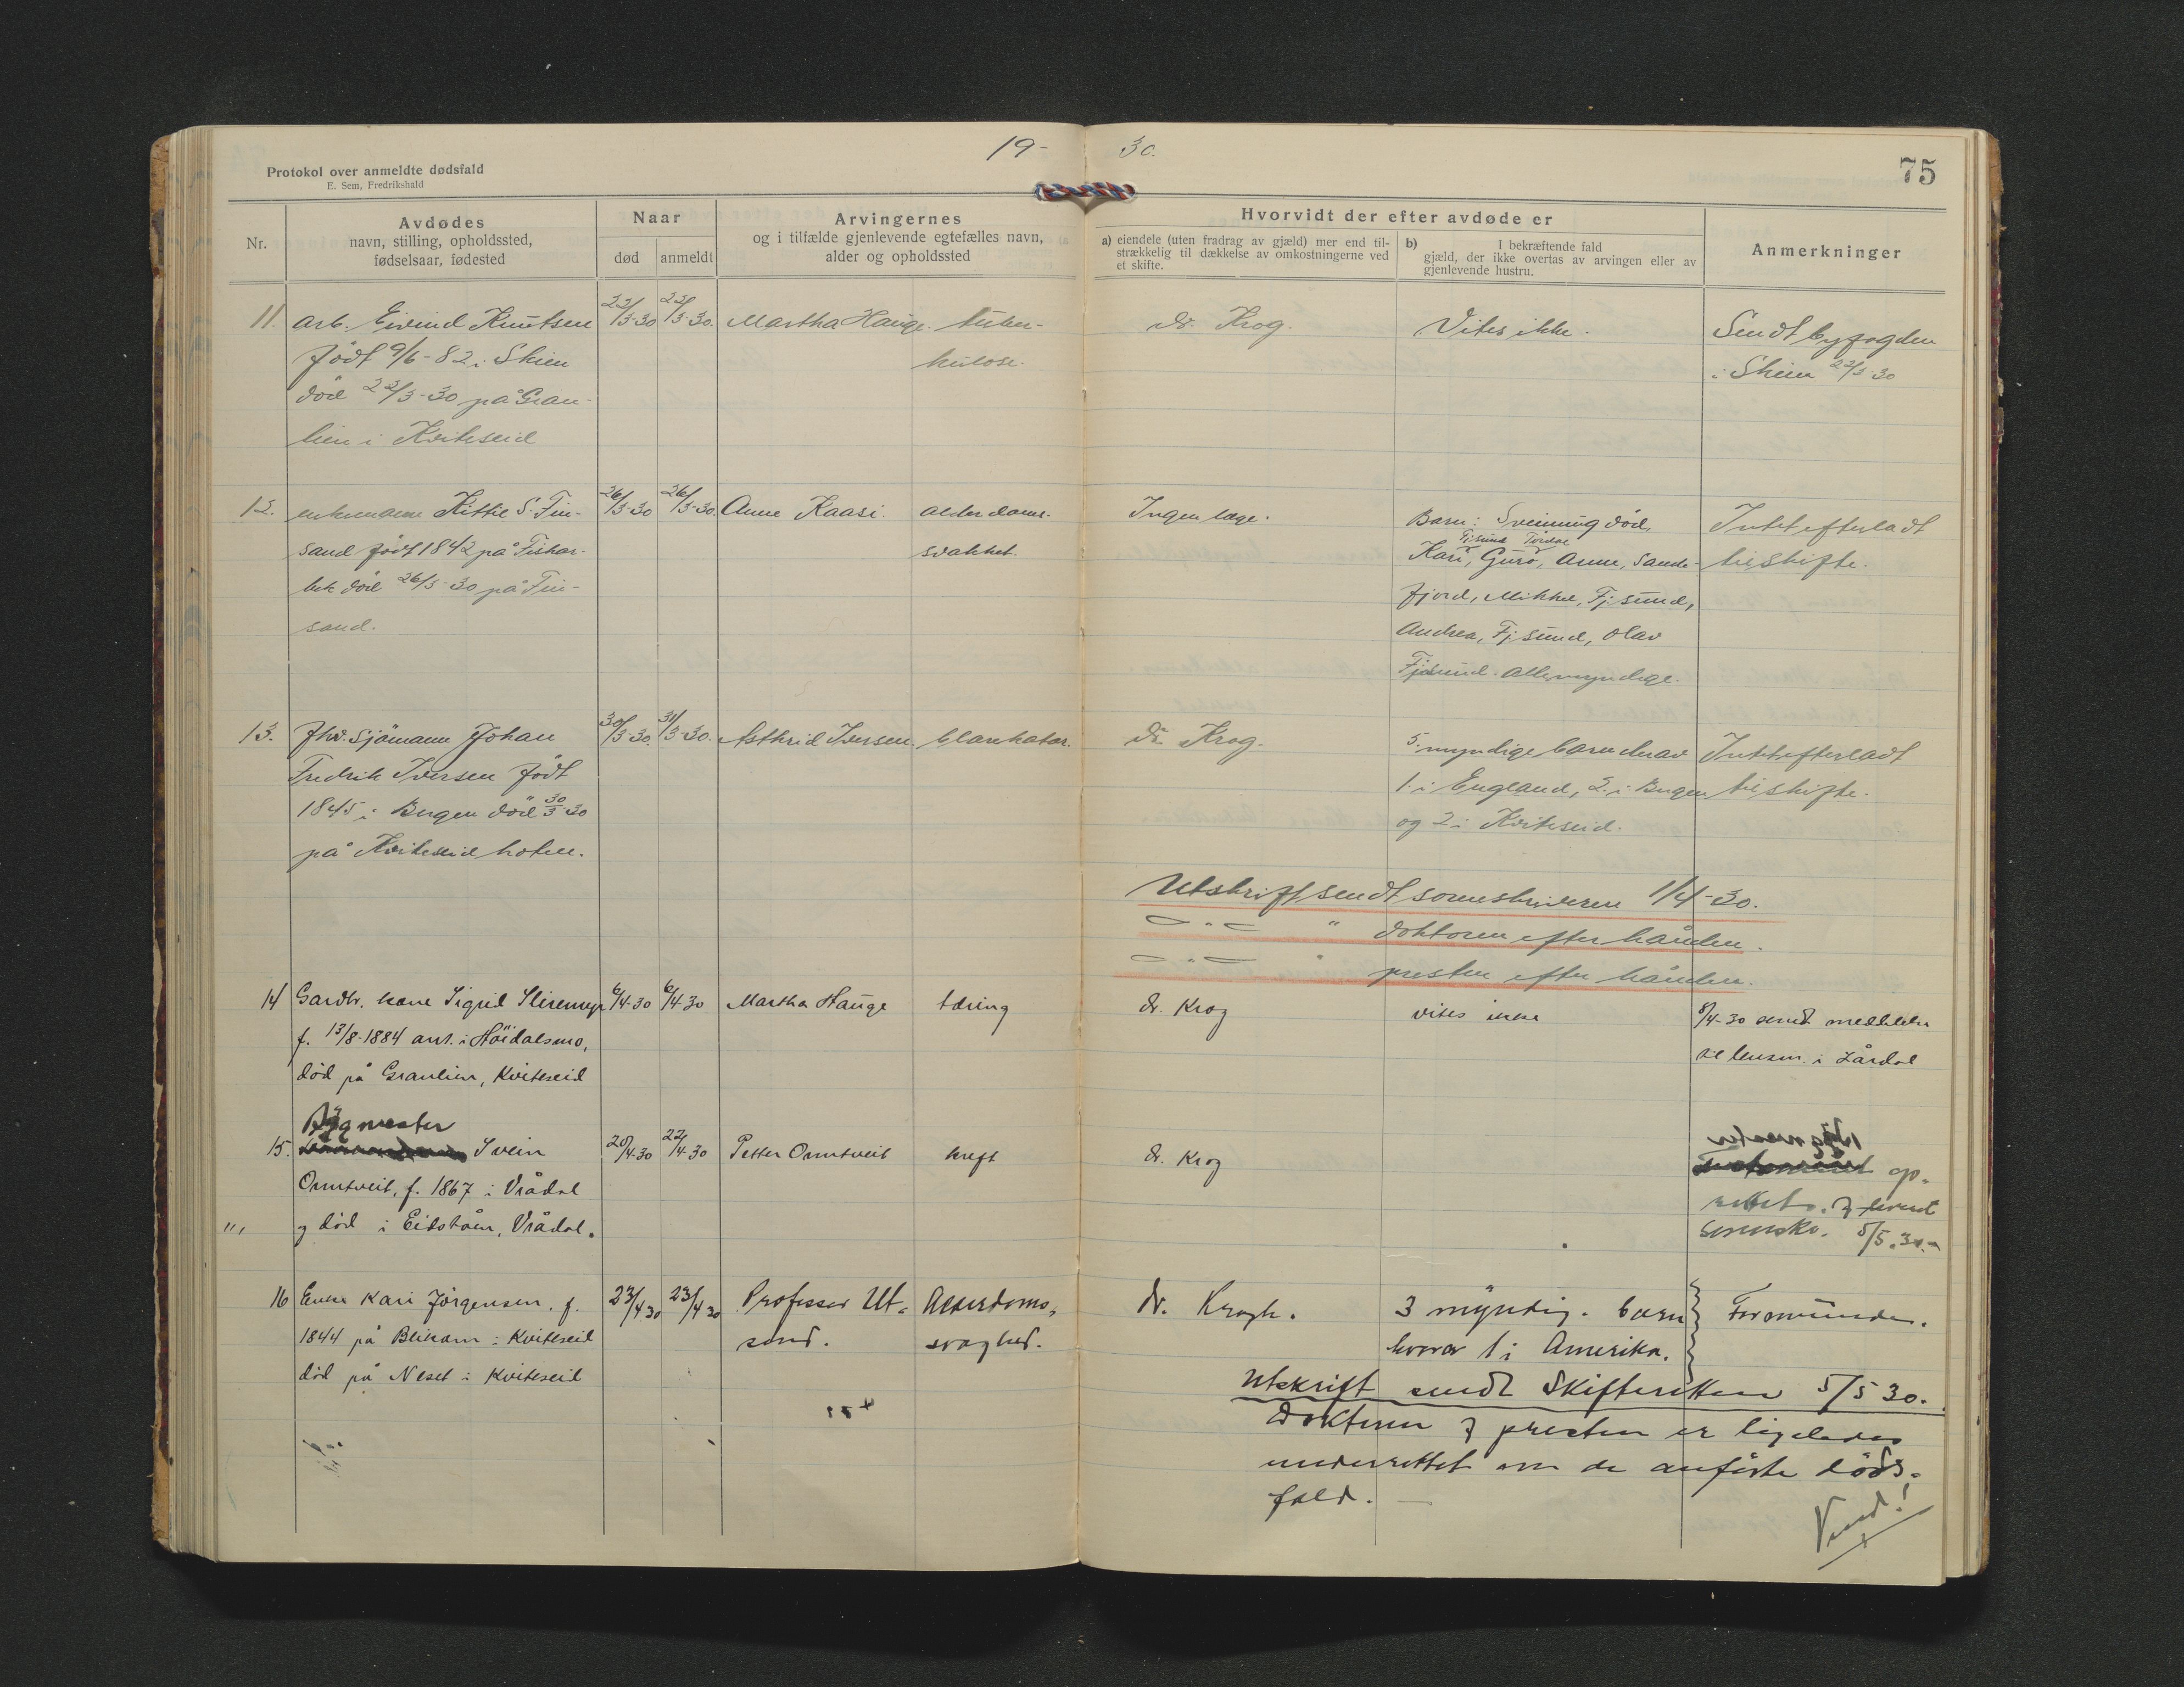 19- 30.
75
Protokol over anmeldte dødsfald
E. Sem, Fredrikshald
Nr.
Avdødes
navn, stilling, opholdssted,
fødselsaar, fødested
Naar
død anmeldt
Arvingernes
og i tilfælde gjenlevende egtefælles navn,
alder og opholdssted
Hvorvidt der efter avdøde er
a) eiendele (uten fradrag av gjæld) mer end til-
strækkelig til dækkelse av omkostningerne ved
et skifte.
b) I bekræftende fald
gjæld, der ikke overtas av arvingen eller av
gjenlevende hustru.
Anmerkninger
11. arb. Eivind Knutsen 22/3-30 23/3-30. Martha Hauge. tuber- dr. Krog. Vites ikke. Sendt byfogden
født 9/6-82 i Skien kulose. i Skien 23/3-30
död 22/3-30 på Gran-
lien i Kviteseid
12. Kittil S. Tin- 26/3-30 26/3-30. Anne Kaasi. alderdoms- Ingen læge. Barn: Sveinung död, Intet efterladt
sand født 1842 på svakhet. Kari, Guro, Anne, Sande- til skifte.
død 26/3-30 på Tin- fjord, Mikkel, Fj.sund,
sand. Andrea, Fj.sund, Olav
Fj.sund. alle myndige.
13. fhv. Sjømann Johan 30/3-30. 31/3-30. Asthrid Iversen. blærekatar. dr. Krog. 5 myndige barn derav Intet efterladt
Fredrik Iversen født 1 i England, 2 i Bergen til skifte.
1845 i Bergen död 30/3-30 og 2 i Kviteseid.
på Kviteseid hotell.
Utskrift sendt sorenskriveren 1/4-30.
" doktoren efter hånden.
" presten efter hånden.
14 Gardbr. kone Sigrid 6/4-30 6/4-30 Martha Hauge tæring dr. Krog vites ikke 8/4-30 sendt meddelelse
f. 13/8-1884 i Höidalsmo, lensm. i Lårdal
död på Granlien, Kviteseid
Bygmester
15. Svein 20/4-30 22/4-30 Petter Ormtveit kreft dr. Krog op-
Ormtveit, f. 1867 i Vrådal
og död i Eidståen, Vrådal. sorensk. 5/5.30.-
16 Enke Kari Jörgensen. f. 23/4 30 23/4 30 Professor Ut- Alderdoms- dr. Krogh. 3 myndig. barn Formuende.
1844 på i Kviteseid sond. svaghed. hvorav 1 i Amerika.
död på Neset i Kviteseid
Utskrift sendt Skifteretten 5/5 30.
Doktoren og presten er ligeledes
underrettet om de anførte döds-
fald.
Vend!